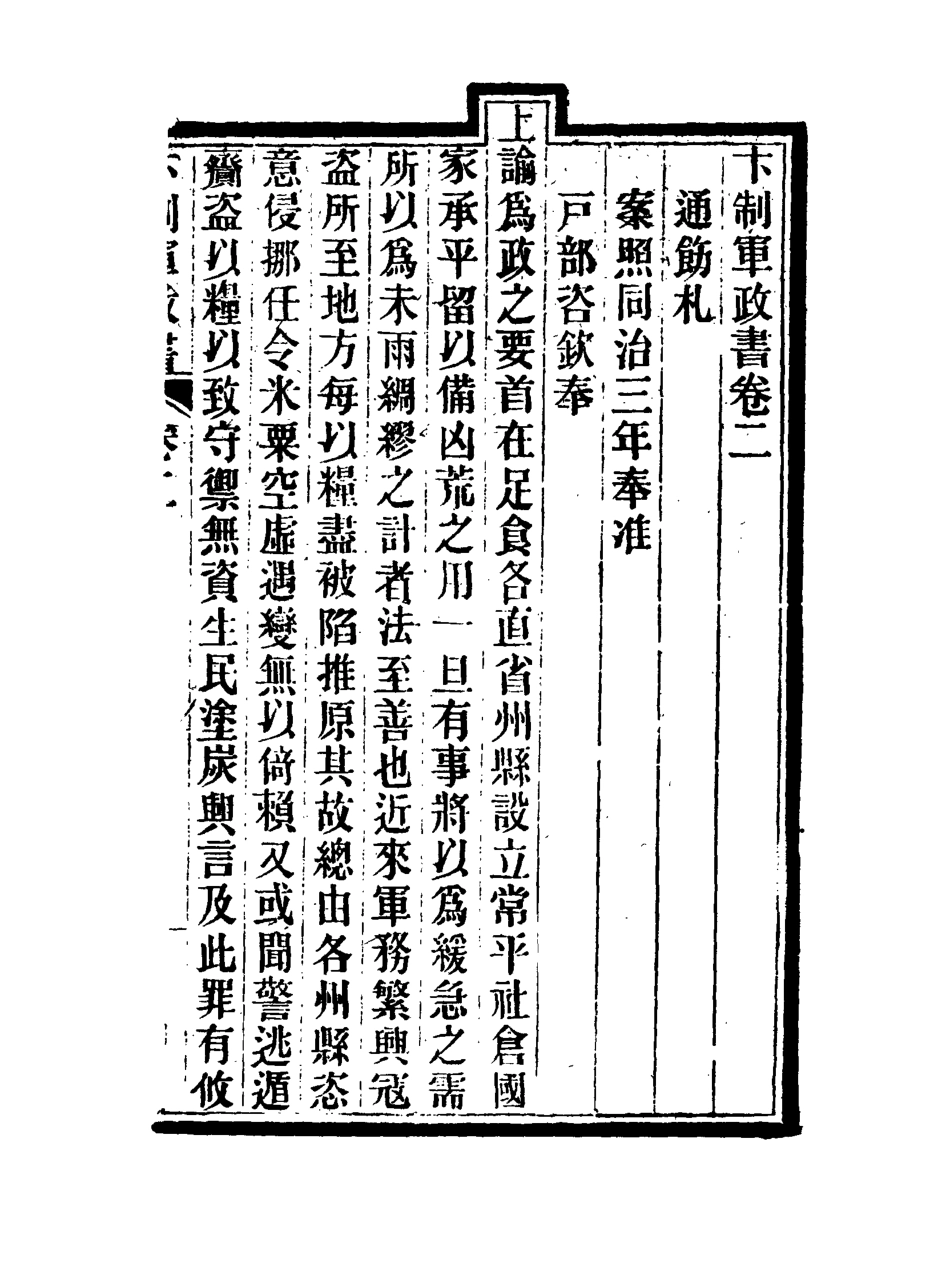 卞制軍政書卷二
通飭札
案照同治三年奉准
戸部咨欽奉
上諭爲政之要首在足食各直省州縣設立常平社倉國
家承平留以備凶荒之用一旦有事將以爲緩急之需
所以爲未雨綢繆之計者法至善也近來軍務繁興冦
盗所至地方每以糧盡被陷推原其故總由各州縣恣
意侵挪任令米粟空虛遇變無以倚賴又或聞警逃遁
齎盗以糧以致守禦無資生民塗炭興言及此罪有攸
卞制軍政書 卷二